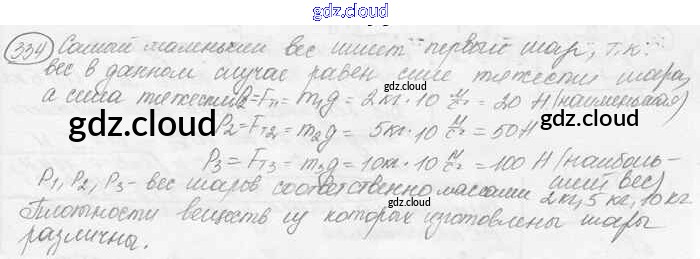 gdz.cloud
334 Самый маленький вес имеет первый шар, т.к.
вес в данном случае равен силе тяжести шара,
а сила тяжести P₁=Fт₁ = m₁g = 2кг·10 м/с² = 20 Н (наименьшая)
gdz.cloud gdz.cloud
P₂=Fт₂ = m₂g = 5кг·10 м/с² = 50Н
P₃ = Fт₃ = m₃g = 10кг·10 м/с² = 100 Н (наиболь-
ший вес)
P₁, P₂, P₃ - вес шаров соответственно массами 2кг, 5 кг, 10 кг
gdz.cloud
Плотности веществ из которых изготовлены шары
различны.
gdz.cloud